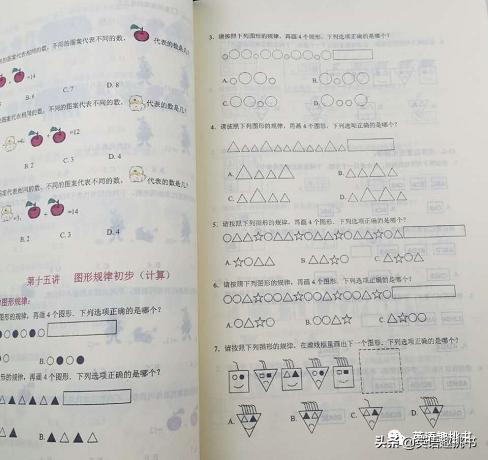 的图案代表相同的数，不同的图案代表不同的数， 代表的数是几？
=14
B. 6 C. 7 D. 8
图案代表相同的数，不同的图案代表不同的数， 代表的数是几？
=4， + =12
B. 2 C. 3 D. 4
图案代表相同的数，不同的图案代表不同的数， 代表的数是几？
=3， + =14
B. 2 C. 3 D. 4
第十五讲 图形规律初步（计算）
图形规律：
图形的规律，再画 4 个图形．下列选项正确的是哪个？
B.
形的规律，再画 4 个图形．下列选项正确的是哪个？
B.
3．请按照下列图形的规律，再画 4 个图形．下列选项正确的是哪个？
A. B.
C. D.
4．请按照下列图形的规律，再画 4 个图形．下列选项正确的是哪个？
A. B.
C. D.
5．请按照下列图形的规律，再画 4 个图形．下列选项正确的是哪个？
A. B. C.
6．请按照下列图形的规律，再画 4 个图形．下列选项正确的是哪个？
A. B. C.
7．请按照下列图形的规律，在虚线框里画出下一个图形．下列选项正确的是哪个？
A. B. C. D.
英语趣挑书
头条 @英语趣挑书